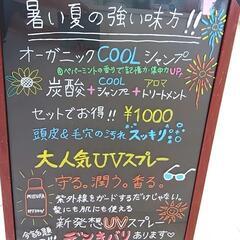 暑い夏の強い味方!!
オーガニックCOOLシャンプ
ペパーミントの香りで記憶力・集中力UP。
炭酸+COOLシャンプ+アロマトリートメント
セットでお得!! ¥1000
頭皮&毛穴の汚れスッキリ
大人気UVスプレー
守る。潤う。香る。
紫外線をガードするだけじゃない。
髪にも肌にも使える
新発想UVスプレー
今話題
あります